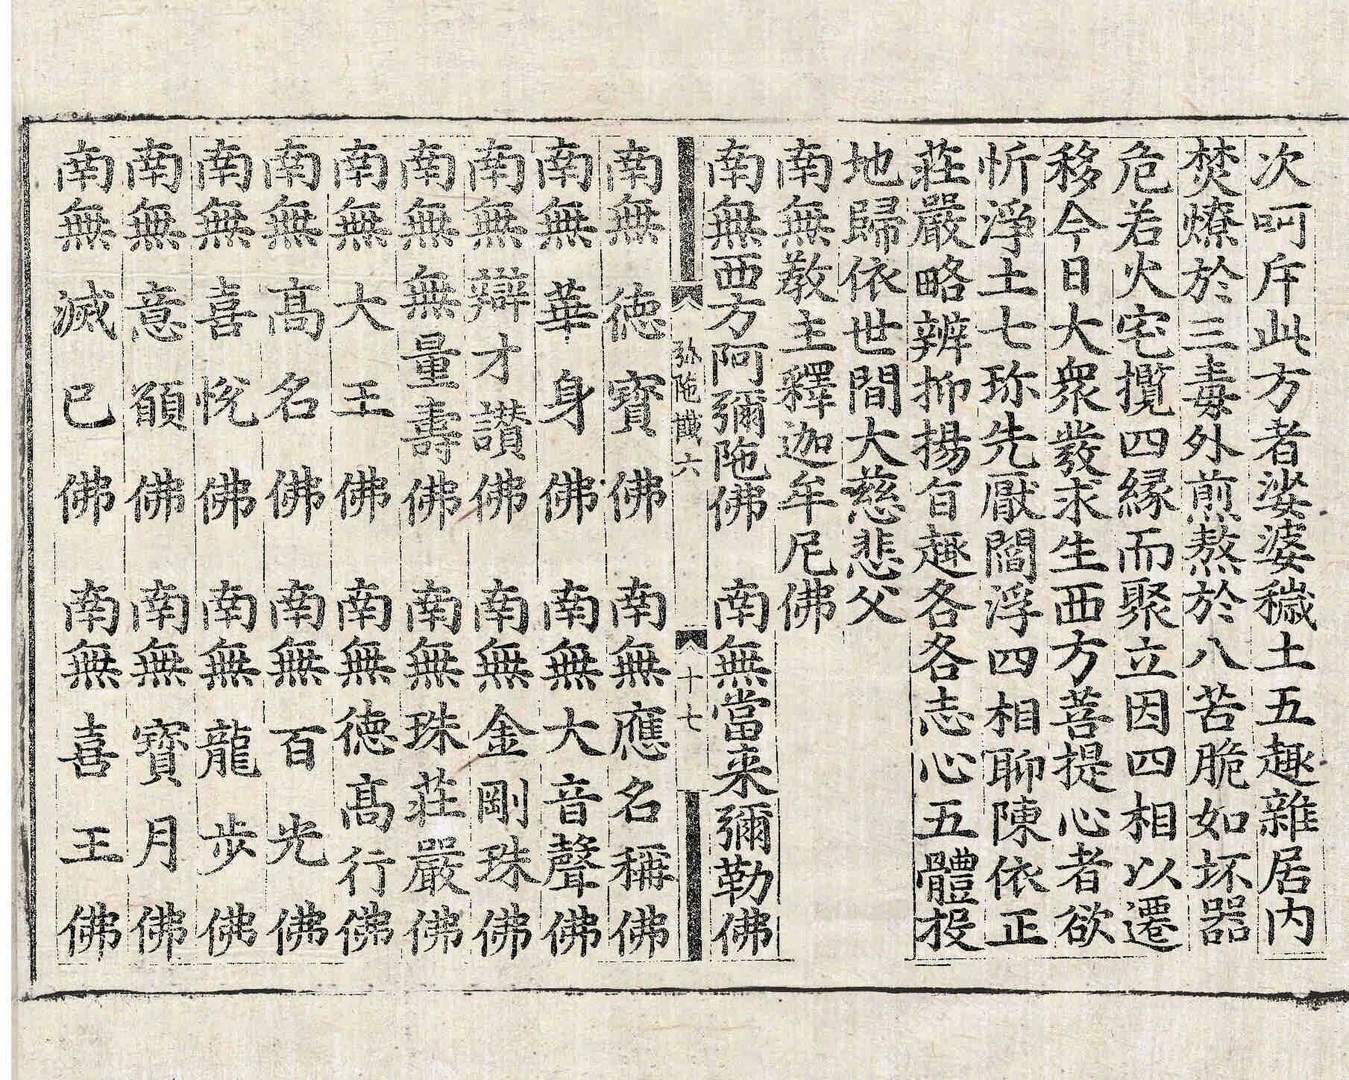 次呵斥此方者娑婆穢土五趣雜居內
焚燎於三毒外煎熬於八苦脆如坏器
危若火宅攬四緣而聚立因四相以遷
移今日大衆發求生西方菩提心者欲
忻淨土七珎先厭閻浮四相聊陳依正
莊嚴略辨抑揚自趣各各志心五體投
地歸依世間大慈悲父
南無教主釋迦牟尼佛
南無西方阿彌陁佛 南無當来彌勒佛
弥陁懺六 十七
南無德寶佛 南無應名稱佛
南無華身佛 南無大音聲佛
南無辯才讚佛 南無金剛珠佛
南無無量壽佛 南無珠莊嚴佛
南無大王佛 南無德髙行佛
南無髙名佛 南無百光佛
南無喜悅佛 南無龍步佛
南無意願佛 南無寶月佛
南無滅已佛 南無喜王佛